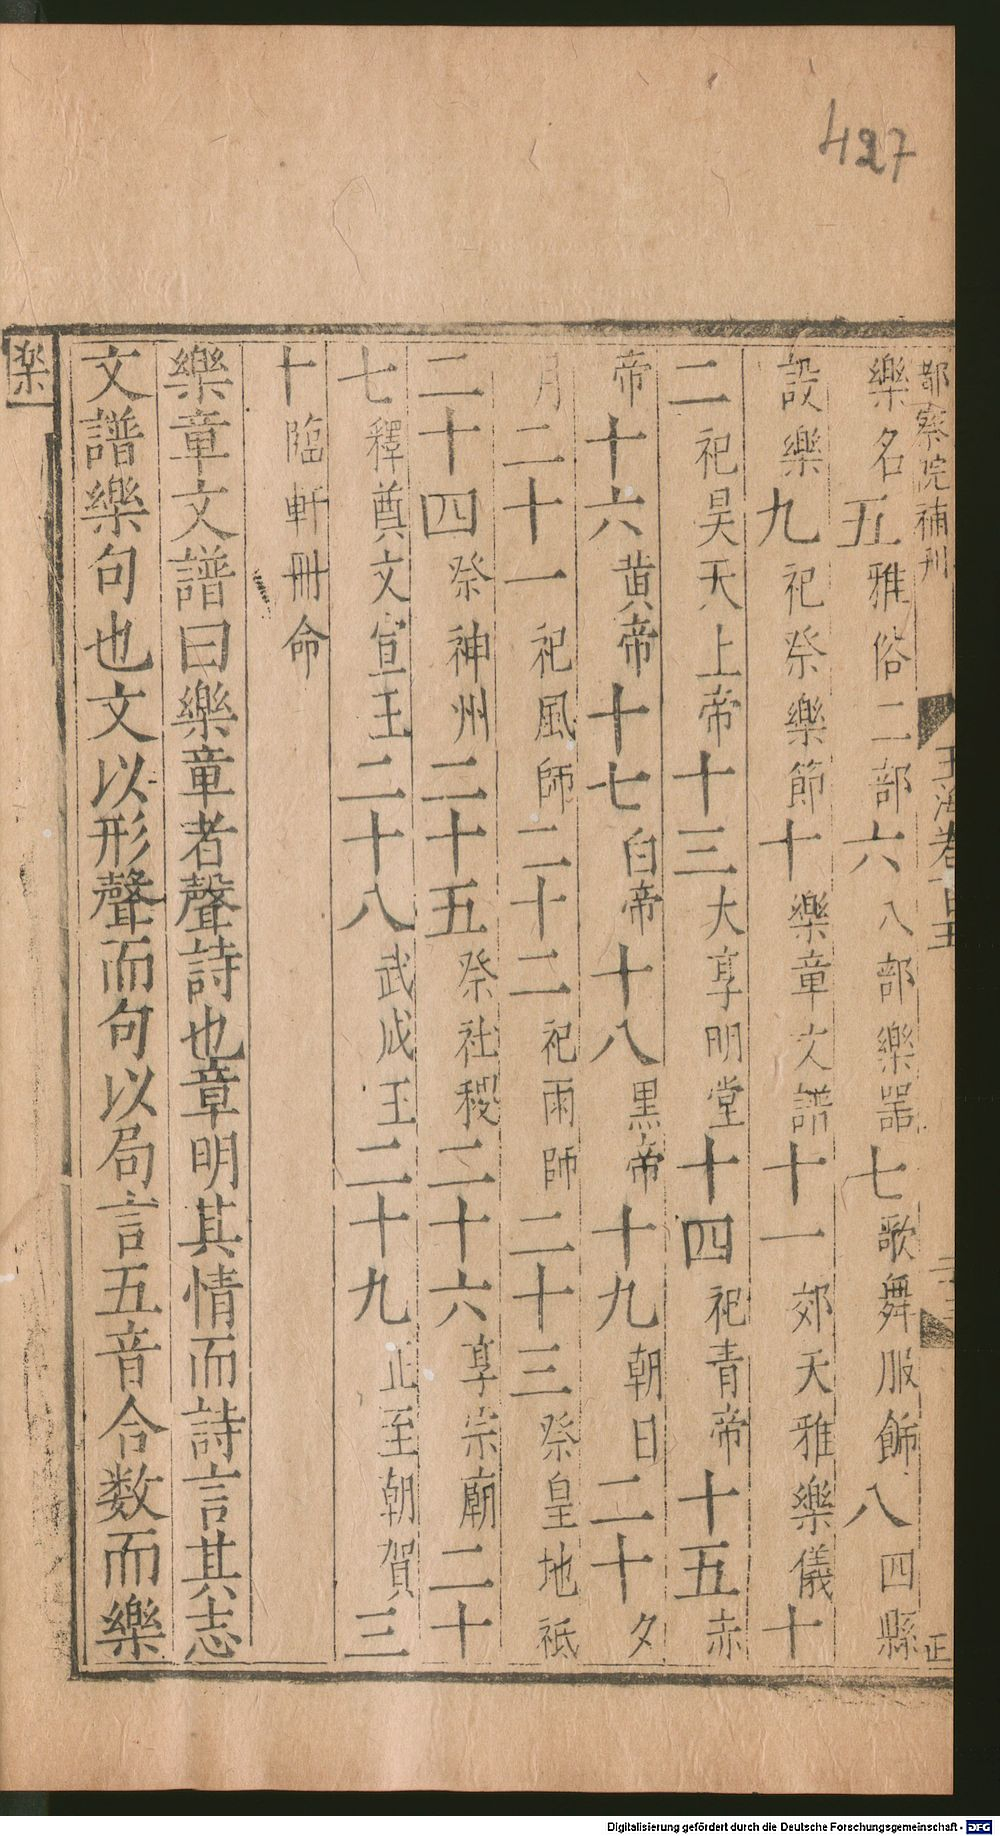 427
都察院補刊
玉海卷一百五
正
樂名五雅俗二部六八部樂器七歌舞服飾八四縣
設樂九祀祭樂節十樂章文譜十一郊天雅樂儀十
二祀昊天上帝十三大享明堂十四祀青帝十五赤
帝十六黄帝十七白帝十八黒帝十九朝日二十夕
月二十一祀風師二十二祀雨師二十三祭皇地祗
二十四祭神州二十五祭社稷二十六享宗廟二十
七釋奠文宣王二十八武成王二十九正至朝賀三
十臨軒冊命
樂章文譜曰樂章者聲詩也章明其情而詩言其志
文譜樂句也文以形聲而句以局言五音合数而樂
楽
Digitalisierung gefördert durch die Deutsche Forschungsgemeinschaft - DFG